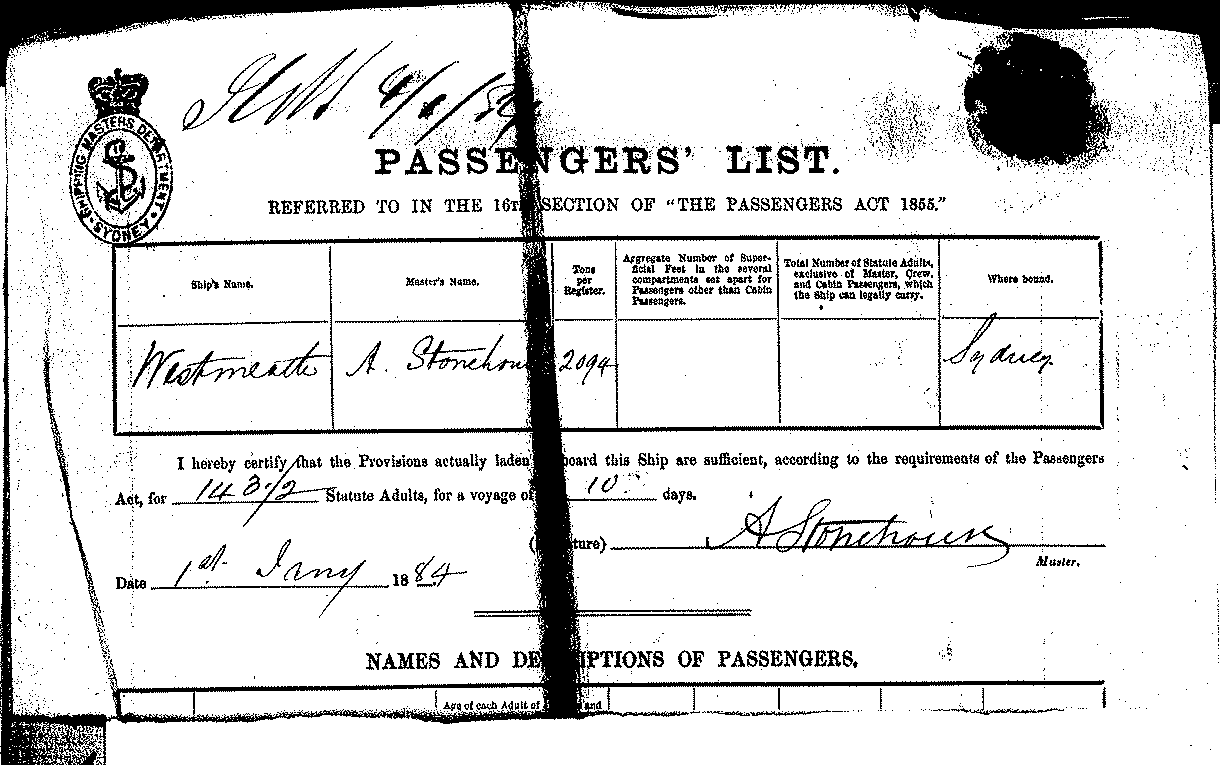 SHIPPING MASTERS DEPARTMENT
SYDNEY
PASSENGERS' LIST.
REFERRED TO IN THE 16TH SECTION OF "THE PASSENGERS ACT 1855."
Ship's Name.
Master's Name.
Tons
per
Register.
Aggregate Number of Super-
ficial Feet in the several
compartments set apart for
Passengers other than Cabin
Passengers.
Total Number of Statute Adults,
exclusive of Master, Crew,
and Cabin Passengers, which
the Ship can legally carry.
Where bound.
Westmeath A. Stonehouse 2094 Sydney
I hereby certify that the Provisions actually laden board this Ship are sufficient, according to the requirements of the Passengers
Act, for 143½ Statute Adults, for a voyage of 10 days.
A Stonehouse
Master.
Date 1st Jany 1884
NAMES AND DESCRIPTIONS OF PASSENGERS.
Age of each Adult of and